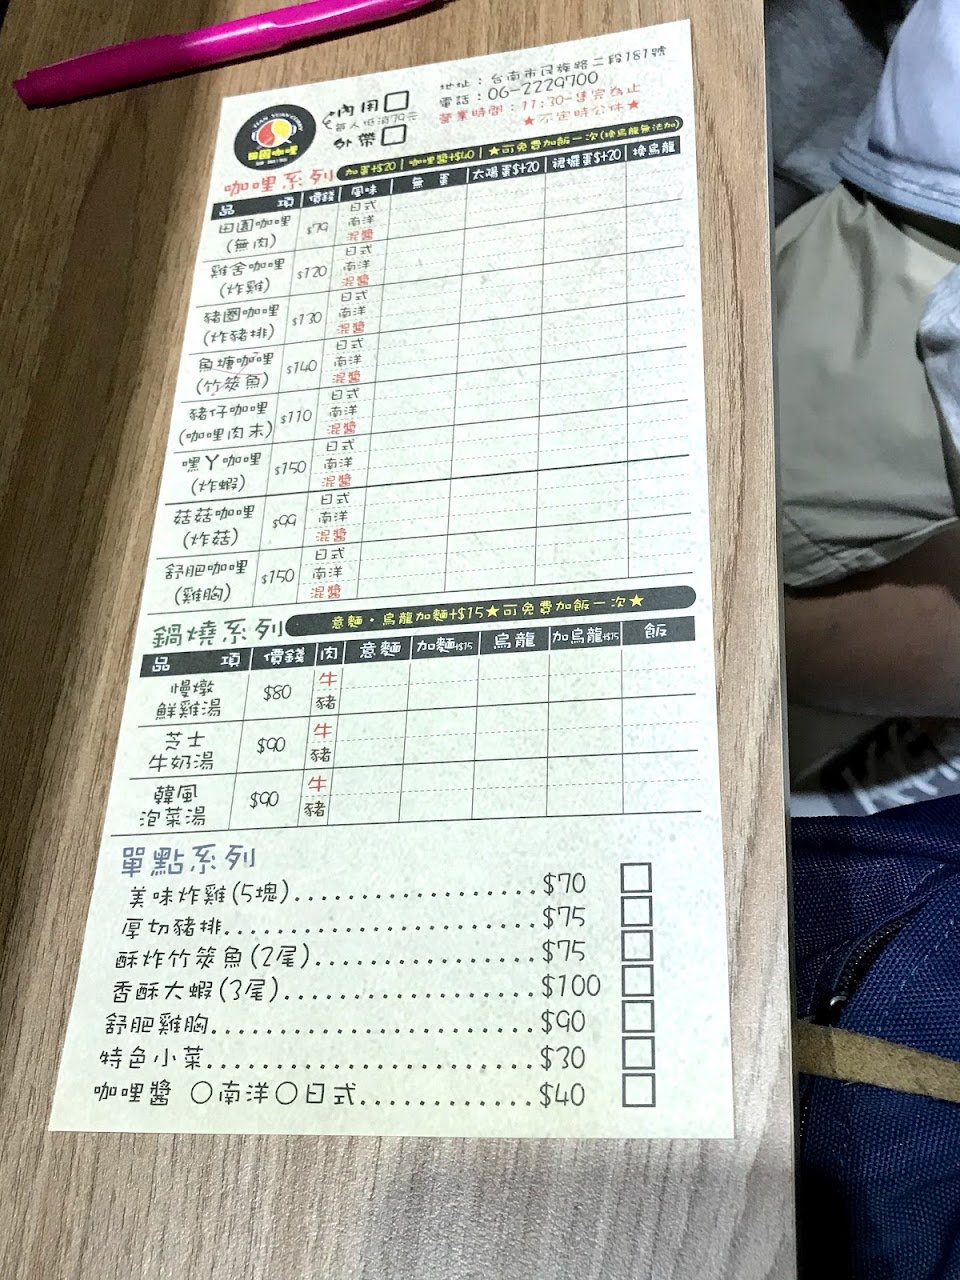 地址：台南市民族路二段181號
電話：06-2229700
營業時間：11:30-售完為止
★不定時公休★
內用□
每人低消79元
外帶□
TIAN YUAN CURRY
田園咖哩
咖哩系列
加蛋+$20 | 咖哩醬+$40 | ★可免費加飯一次(換烏龍無法加)
品項 價錢 風味 無蛋 太陽蛋$+20 裙襬蛋$+20 換烏龍
田園咖哩 (無肉) $79 日式 南洋 混醬
雞舍咖哩 (炸雞) $120 日式 南洋 混醬
豬圈咖哩 (炸豬排) $130 日式 南洋 混醬
魚塘咖哩 (竹筴魚) $140 日式 南洋 混醬
豬仔咖哩 (咖哩肉末) $110 日式 南洋 混醬
嘿丫咖哩 (炸蝦) $150 日式 南洋 混醬
菇菇咖哩 (炸菇) $99 日式 南洋 混醬
舒肥咖哩 (雞胸) $150 日式 南洋 混醬
鍋燒系列
意麵・烏龍加麵+$15★可免費加飯一次★
品項 價錢 肉 意麵 加麵+$15 烏龍 加烏龍+$15 飯
慢燉鮮雞湯 $80 牛 豬
芝士牛奶湯 $90 牛 豬
韓風泡菜湯 $90 牛 豬
單點系列
美味炸雞(5塊)..................$70 □
厚切豬排........................$75 □
酥炸竹筴魚(2尾)................$75 □
香酥大蝦(3尾)..................$100 □
舒肥雞胸........................$90 □
特色小菜........................$30 □
咖哩醬 ○南洋○日式.............$40 □